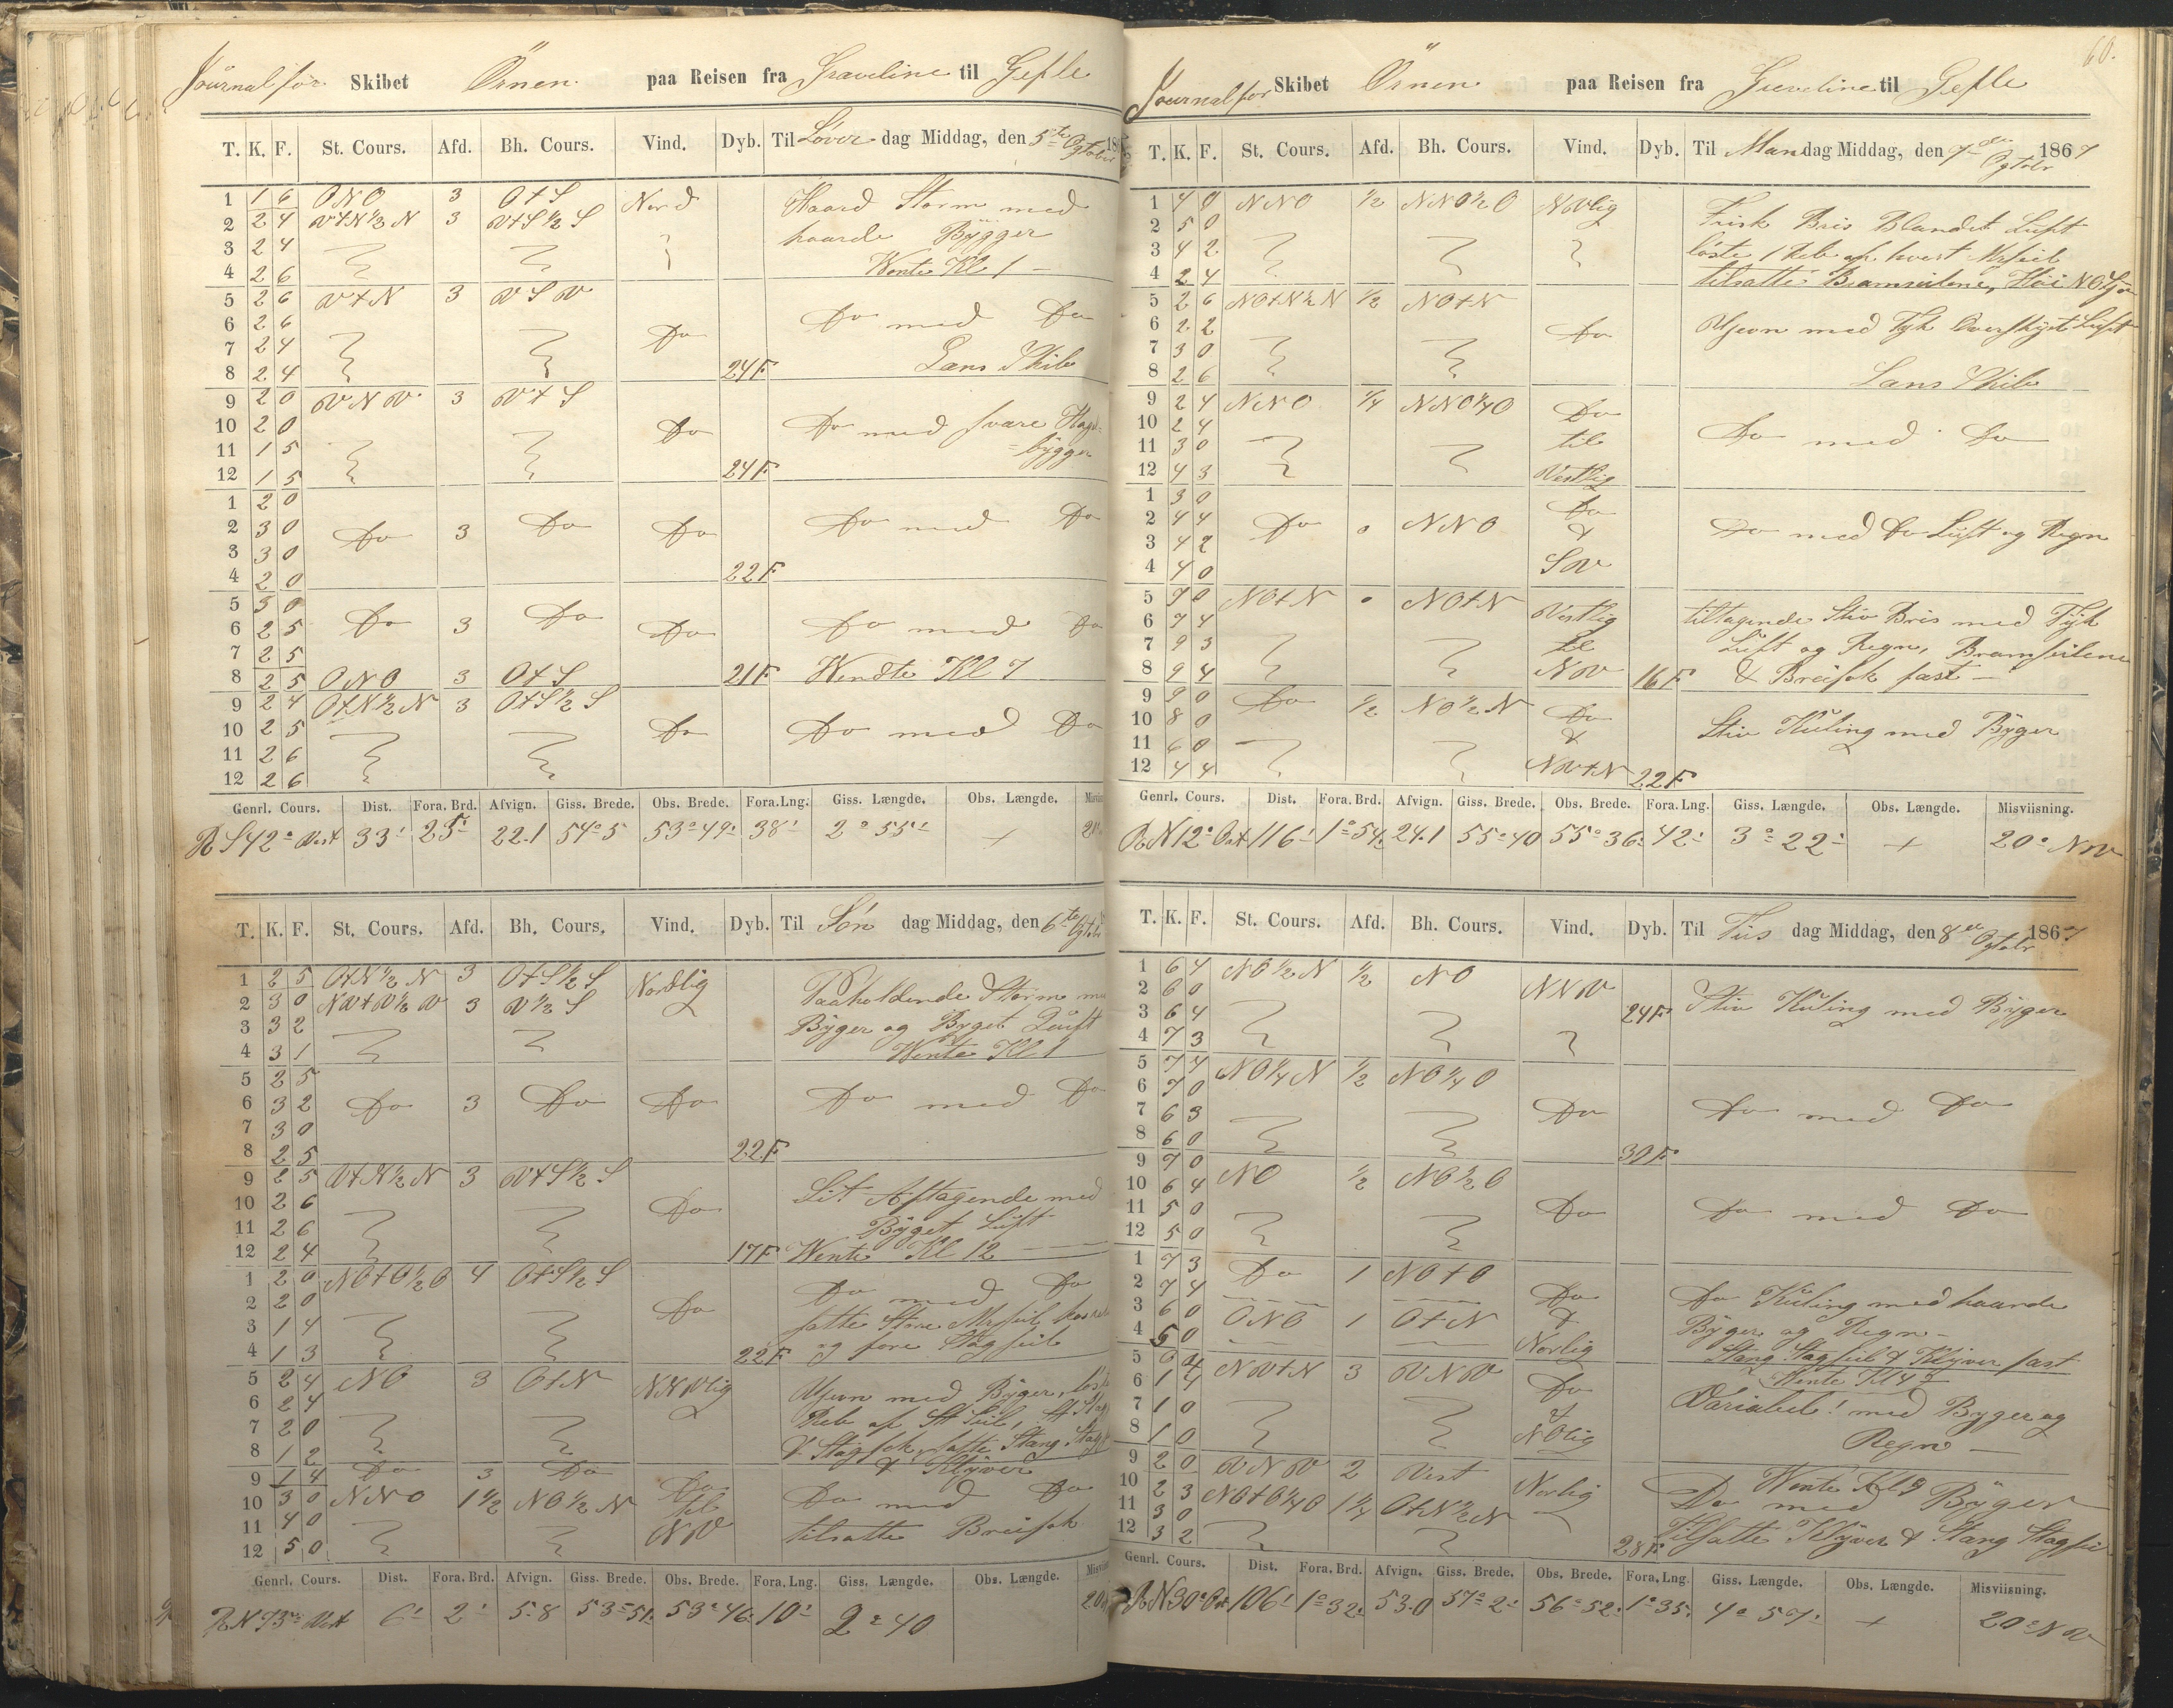 Journal for Skibet Örnen paa Reisen fra Graveline til Gefle
T. K. F. St. Cours. Afd. Bh. Cours. Vind. Dyb. Til Löver dag Middag, den 5te Ogtober 18
1 1 6 ONO 3 O+S Nord Haard Storm med
2 2 4 V+N½N 3 V+S½S haarde Bÿgger
3 2 4
4 2 6 Wente Kl 1
5 2 6 V+N 3 VSV
6 2 6 Do Do med Do
7 2 4
8 2 4 24F Lans Skib
9 2 0 VNV 3 V+S
10 2 0 Do Do med svare Hagl-
11 1 5 bÿgger
12 1 5 24F
1 2 0
2 3 0 Do 3 Do Do Do med Do
3 3 0
4 2 0 22F
5 3 0 Do 3 Do
6 2 5 Do Do med Do
7 2 5
8 2 5 ONO 3 O+S 21F Wendte Kl 7
9 2 4 O+N½N 3 O+S½S
10 2 5 Do Do med Do
11 2 6
12 2 6
Genrl. Cours. Dist. Fora. Brd. Afvign. Giss. Brede. Obs. Brede. Fora. Lng. Giss. Længde. Obs. Længde.
R S 42° Vest 33' 25' 22.1 54°5 53°49' 38' 2°55' +
T. K. F. St. Cours. Afd. Bh. Cours. Vind. Dyb. Til Sön dag Middag, den 6te Ogtober
1 2 5 O+N½N 3 O+S½S Nordlig Paaholdende Storm
2 3 0 NV+V½V 3 V½S Bÿger og Bÿget Luft
3 3 2
4 3 1 Wente Kl 1
5 2 5
6 3 2 Do 3 Do Do Do med Do
7 3 0
8 2 5 22F
9 2 5 V+N½N 3 V+S½S Lit Aftagende med
10 2 6 Do Bÿget Luft
11 2 6
12 2 4 17F Wente Kl 12
1 2 0 NO+O½O 4 O+S½S Do med Do
2 2 0 Do satte Store Mrsseil
3 1 4
4 1 3 22F og fore Stagseil
5 2 4 NO 3 O+N NNVlig Ujevn med Bÿger,
6 2 4 Reb af St Seil,
7 2 0 Stagfok, satte Stang
8 1 2 & Klÿver
9 1 4 Do 3 Do Do
10 3 0 NNO 1½ NO½N til Do med Do
11 4 0 NV tilsatte Breifok
12 5 0
Genrl. Cours. Dist. Fora. Brd. Afvign. Giss. Brede. Obs. Brede. Fora. Lng. Giss. Længde. Obs. Længde.
R N 73° Vest 6' 2' 5.8 53°51' 53°46' 10' 2°40
60.
Journal for Skibet Örnen paa Reisen fra Greveline til Gefle
T. K. F. St. Cours. Afd. Bh. Cours. Vind. Dyb. Til Man dag Middag, den 7de Ogtobr 1867
1 4 0 NNO ½ NNO½O NVlig Frisk Bris Blandet Luft
2 5 0
3 4 2 löste 1 Reb af hvert Mrsseil
4 2 4 tilsatte Bramseilene, Höi NO Sjö
5 2 6 NO+N½N ½ NO+N
6 2 2 Do Ujevn med Tyk Overskÿet Luft
7 3 0
8 2 6 Lans Skib
9 2 4 NNO ¼ NNO¼O Do
10 2 4 til Do med Do
11 3 0
12 4 3 Vestlig
1 3 0 Do
2 4 4 Do 0 NNO & Do med Do Luft og Regn
3 4 2
4 4 0 SV
5 7 0 NO+N 0 NO+N Vestlig tiltagende Stiv Bris med Tÿk
6 7 4
7 9 3 til Luft og Regn, Bramseilene
8 9 4 NV 16F & Breifok fast
9 9 0 Do ½ NO½N Do
10 8 0 & Stiv Kuling med Bÿger
11 6 0
12 4 4 NV+N 22F
Genrl. Cours. Dist. Fora. Brd. Afvign. Giss. Brede. Obs. Brede. Fora. Lng. Giss. Længde. Obs. Længde. Misviisning.
R N 12° Ost 116' 1°54' 24.1 55°40 55°36' 42' 3°22' + 20° NV
T. K. F. St. Cours. Afd. Bh. Cours. Vind. Dyb. Til Tiis dag Middag, den 8de Ogtobr 1867
1 6 4 NO½N ½ NO NNV
2 6 0
3 6 4 24F Stiv Kuling med Bÿger
4 7 3
5 7 4 NO¼N ½ NO¼O
6 7 0
7 6 3 Do Do med Do
8 6 0 30F
9 7 0 NO ½ NO½O
10 6 4
11 5 0 Do Do med Do
12 5 0
1 7 3 Do 1 NO+O
2 7 4 Do Do Kuling med haarde
3 6 0 ONO 1 O+N & Bÿger og Regn
4 5 0 Norlig Stang Stagseil & Klÿver fast
5 0 4 NV+N 3 VNV Wente Kl 4
6 1 4 Do Variabel! med Bÿger og
7 1 0 &
8 1 0 NOlig Regn
9 2 0 VNV 2 Vest Wente Kl 9
10 2 3 NO+O¼O 1¼ O+N½N Norlig Do med Bÿger
11 3 0
12 3 2 28F Tilsatte Klÿver & Stang Stagseil
Genrl. Cours. Dist. Fora. Brd. Afvign. Giss. Brede. Obs. Brede. Fora. Lng. Giss. Længde. Obs. Længde. Misviisning.
R N 30° Ost 106' 1°32' 53.0 57°2' 56°52' 1°35' 4°57' + 20° NV